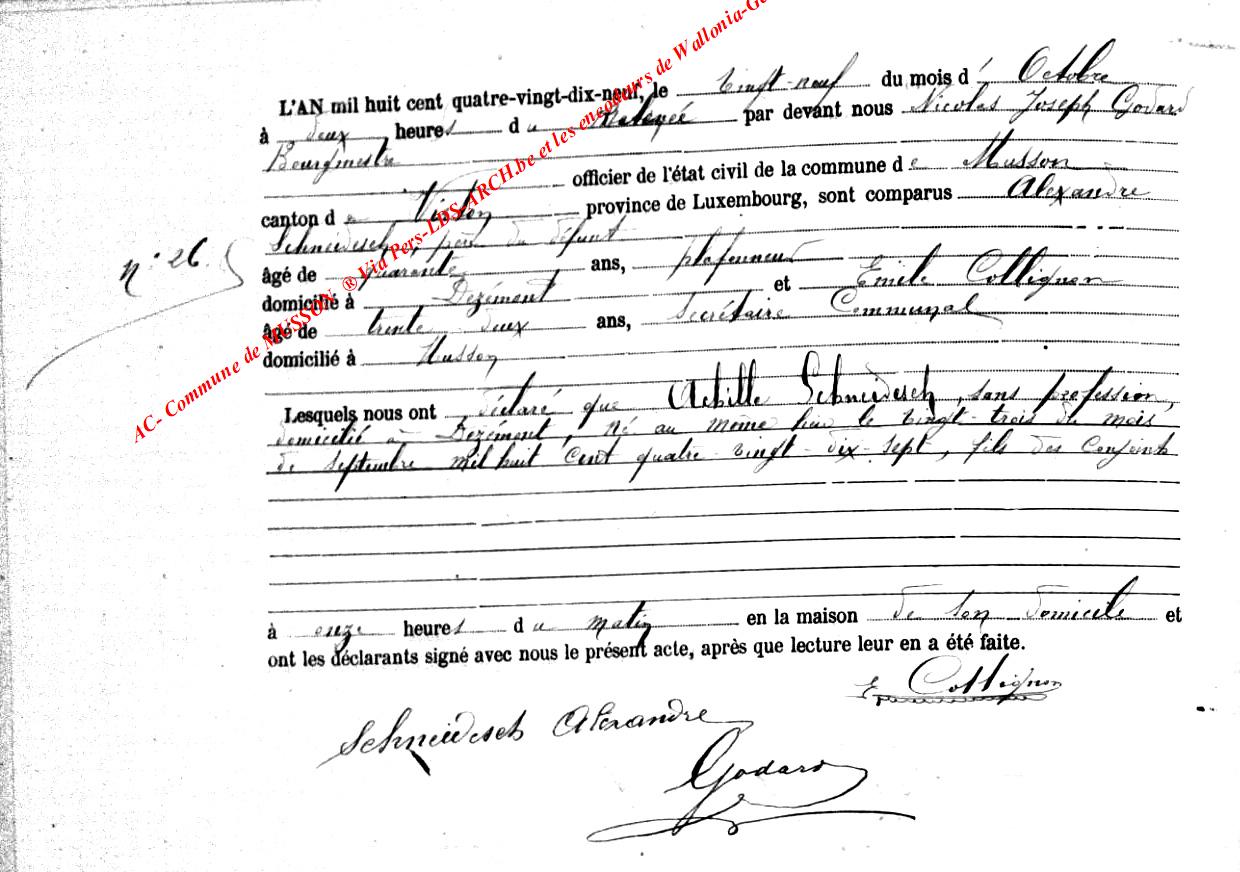 L'AN mil huit cent quatre-vingt-dix-neuf, le vingt-neuf du mois d' Octobre
à deux heures du Relevée par devant nous Nicolas Joseph Godard
Bourgmestre
officier de l'état civil de la commune de Musson
canton de Virton province de Luxembourg, sont comparus Alexandre
Schneidesch, père du défunt
n° 26.
âgé de quarante ans, plafonneur
domicilié à Dezémont et Emile Collignon
âgé de trente deux ans, Secrétaire Communal
domicilié à Musson
Lesquels nous ont déclaré que Achille Schneidesch, sans profession,
domicilié à Dezémont, né au même lieu le vingt-trois du mois
de septembre mil huit cent quatre vingt dix-sept, fils des conjoints
à onze heures du matin en la maison de son domicile et
ont les déclarants signé avec nous le présent acte, après que lecture leur en a été faite.
E Collignon
Schneidesch Alexandre
Godard
AC- Commune de MUSSON, ® Via Pers-LDS-ARCH.be et les encodeurs de Wallonia-Ge